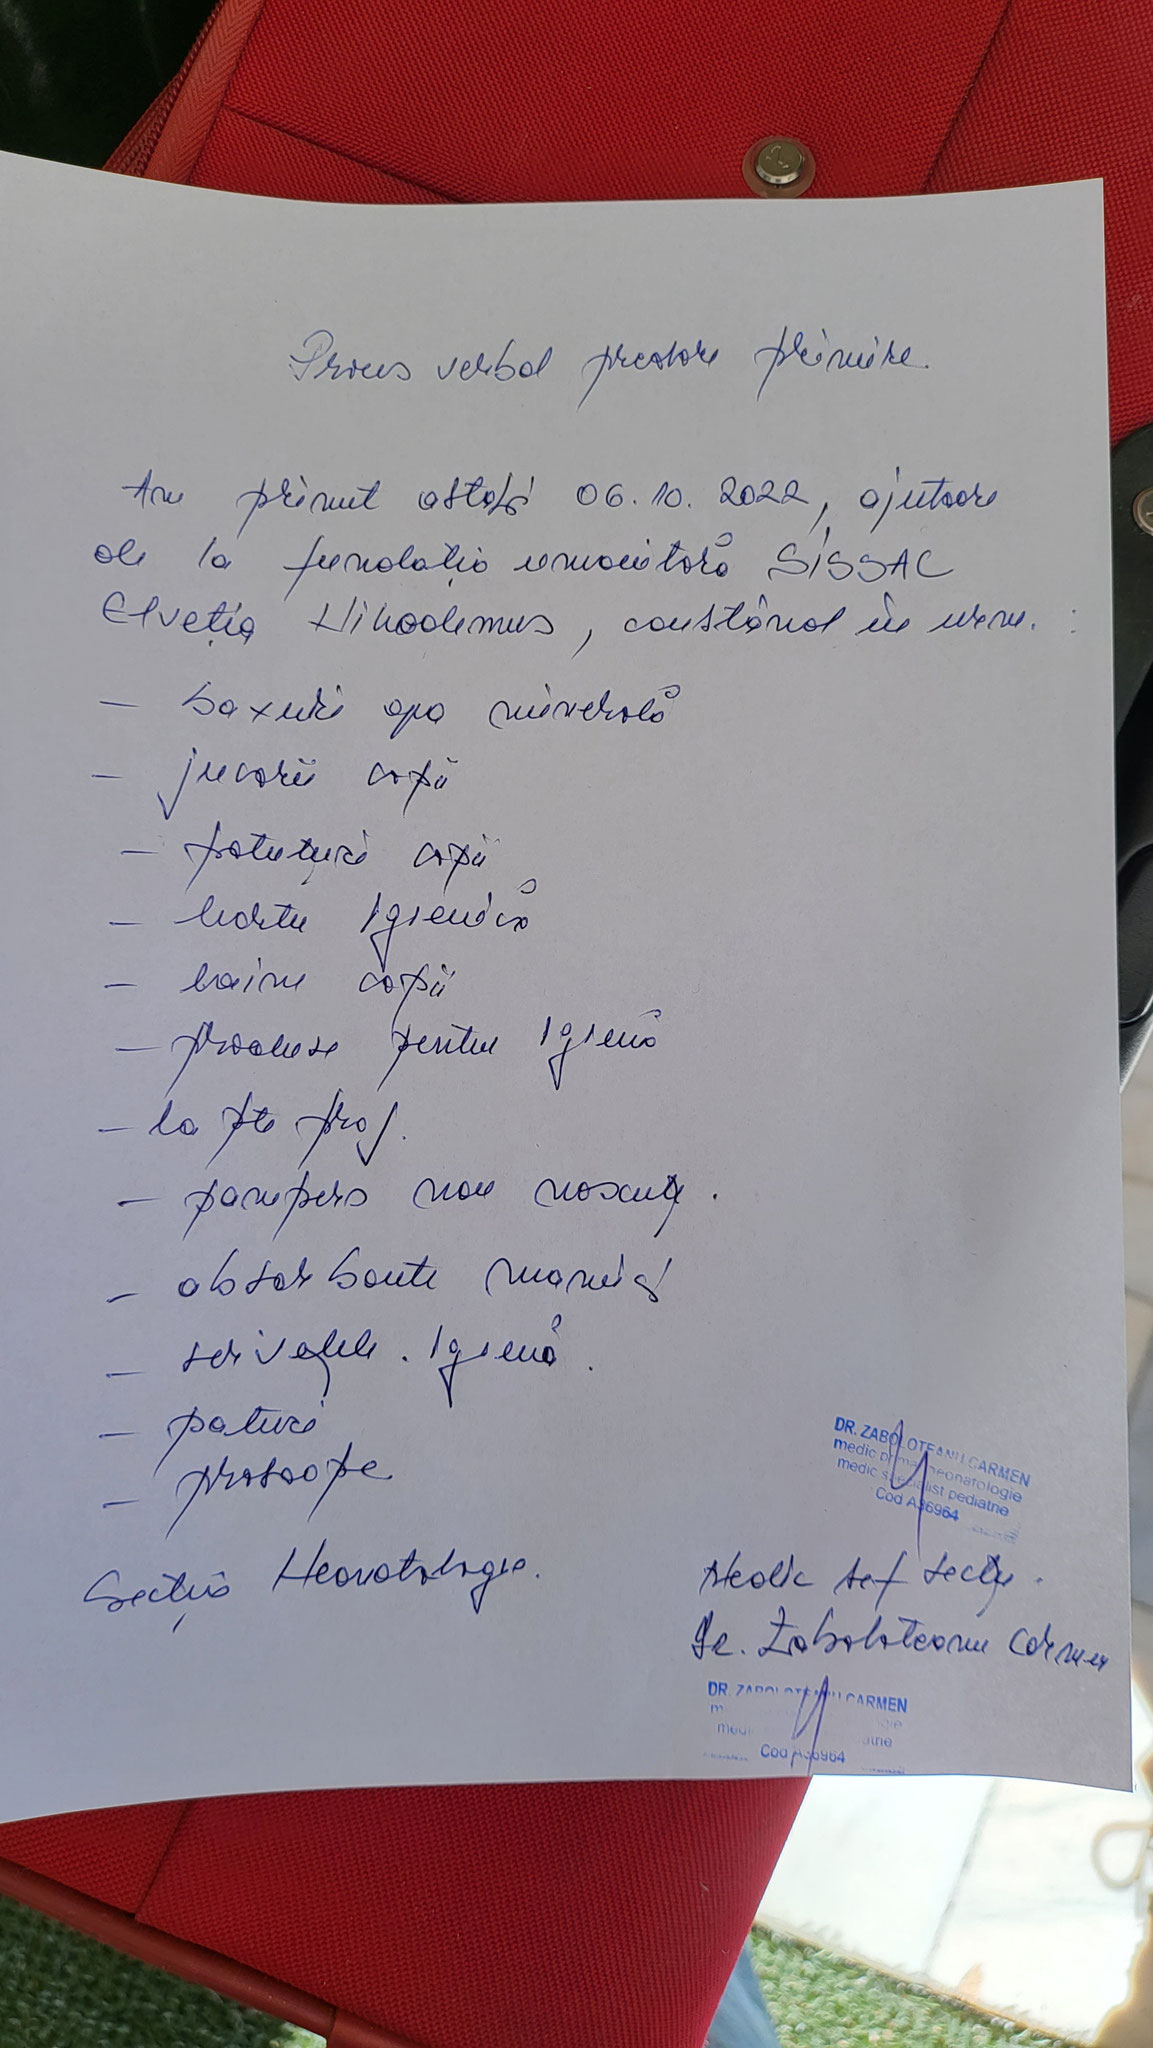 Proces verbal predare primire.
Am primit astăzi 06.10.2022, ajutoare
de la fundația umanitară SISSAC
Elveția Nikodemus, constând în urm. :
- baxuri apa minerală
- jucării copii
- pătuțuri copii
- hârtie Igienică
- haine copii
- produse pentru Igienă
- lapte praf.
- pampers nou născuți.
- absorbante mămici
- șervețele. Igienă.
- paturi
- prosoape
Secția Neonatologie.
DR. ZABOLOTEANU CARMEN
medic primar neonatologie
medic specialist pediatrie
Cod A36964
Medic șef secție.
Dr. Zaboloteanu Carmen
DR. ZABOLOTEANU CARMEN
Cod A36964